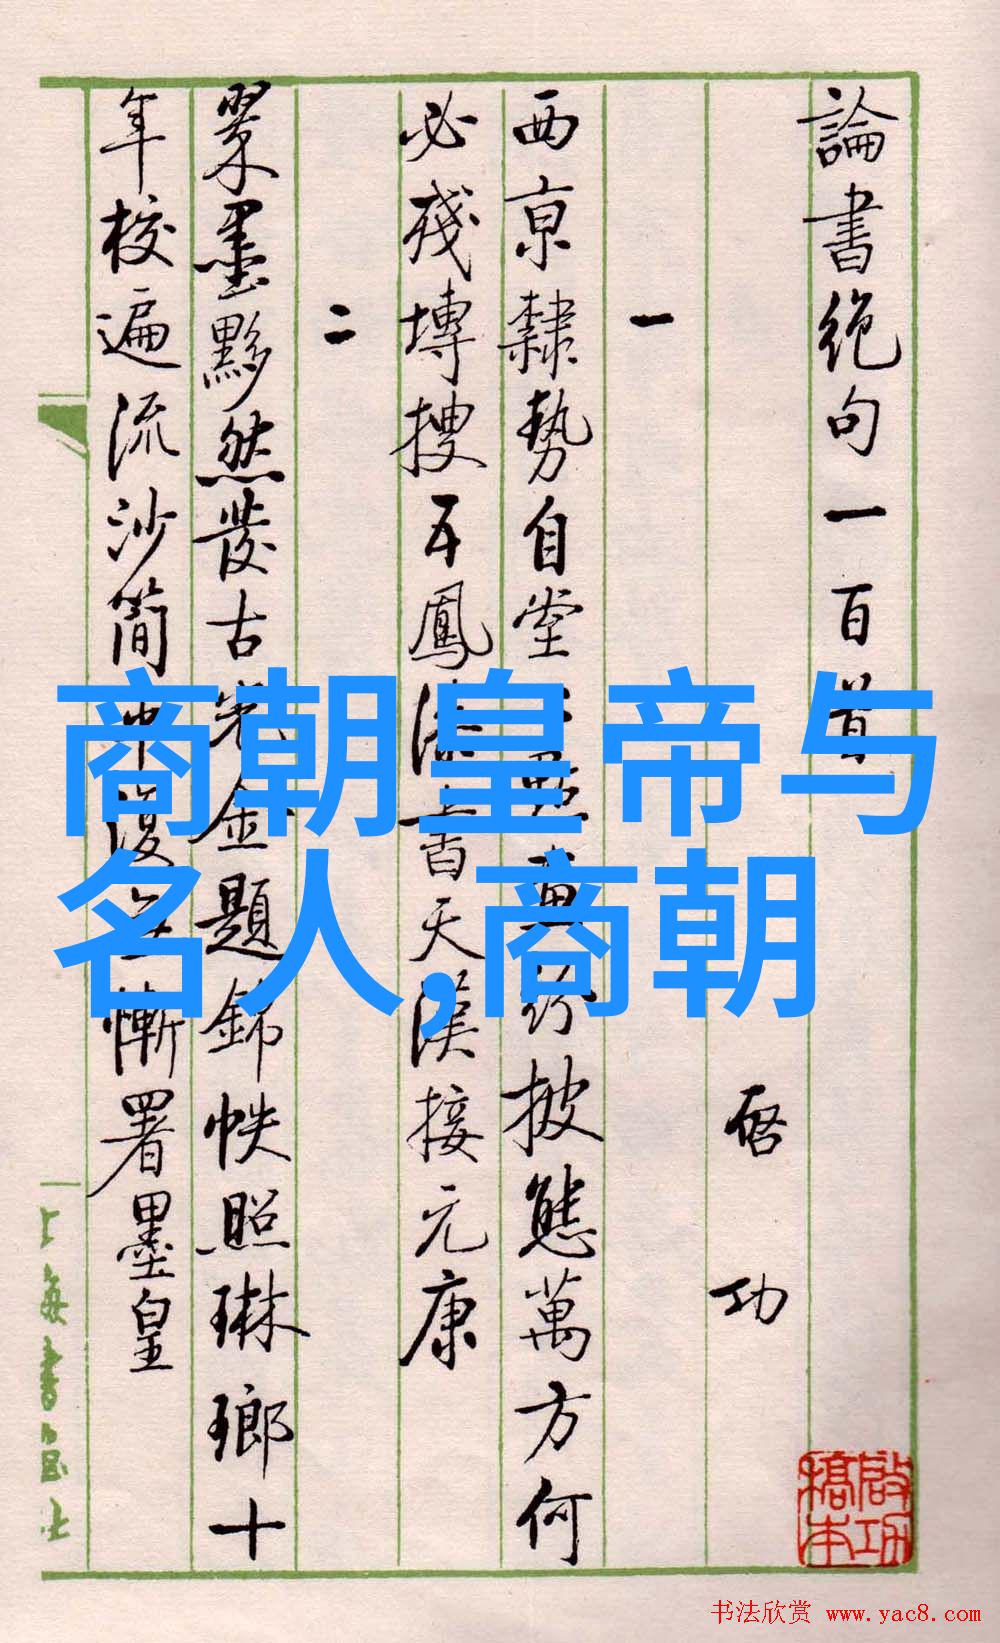 論書絕句一百首
啓功
一
西京隸勢自堂
披態萬方何
必殘塼搜五鳳漆書天漢接元康
二
翠墨黟然發古光金題錦帙照琳瑯十
年校遍流沙簡平復無慚署墨皇
商朝皇帝与
名人,商朝
上海書画社
啟功
稿本
书法欣赏 www.yac8.com